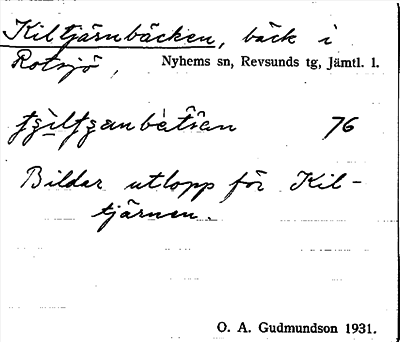 Kiltjärnbäcken, bäck i
Rotsjö, Nyhems sn, Revsunds tg, Jämtl. l.
76
Bildar utlopp för Kil-
tjärnen.
O. A. Gudmundson 1931.